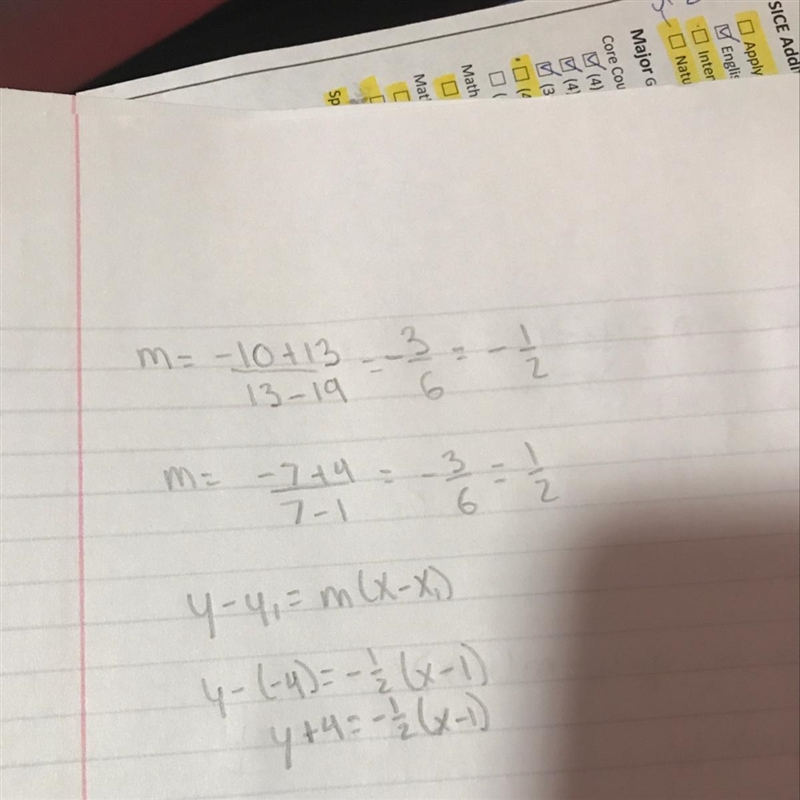 SICE Addi
Apply
Englis
Inter
Natu
Major G
Core Cou
(4)
(4)
(3
(4
(
Math
Mat
Sp
m = \frac{-10+13}{13-19} = -\frac{3}{6} = -\frac{1}{2}
m = \frac{-7+4}{7-1} = -\frac{3}{6} = \frac{1}{2}
y-y₁ = m(x-x₁)
y-(-4) = -\frac{1}{2}(x-1)
y+4 = -\frac{1}{2}(x-1)